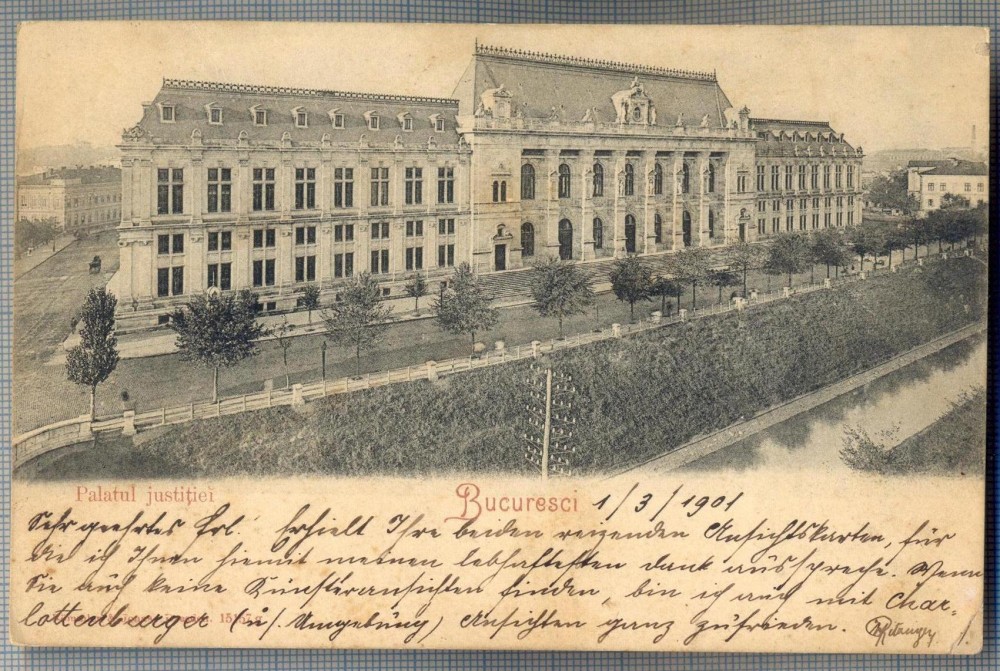 Palatul justiției
Bucuresci 1/3/1901
Sehr geehrtes Frl. Erhielt Ihre beiden reizenden Ansichtskarten, für
die ich Ihnen hiemit meinen lebhaftesten dank ausspreche. Wenn
Sie auch keine Künsteransichten finden, bin ich auch mit Char-
lottenburger (u/ Umgebung) Ansichten ganz zufrieden.